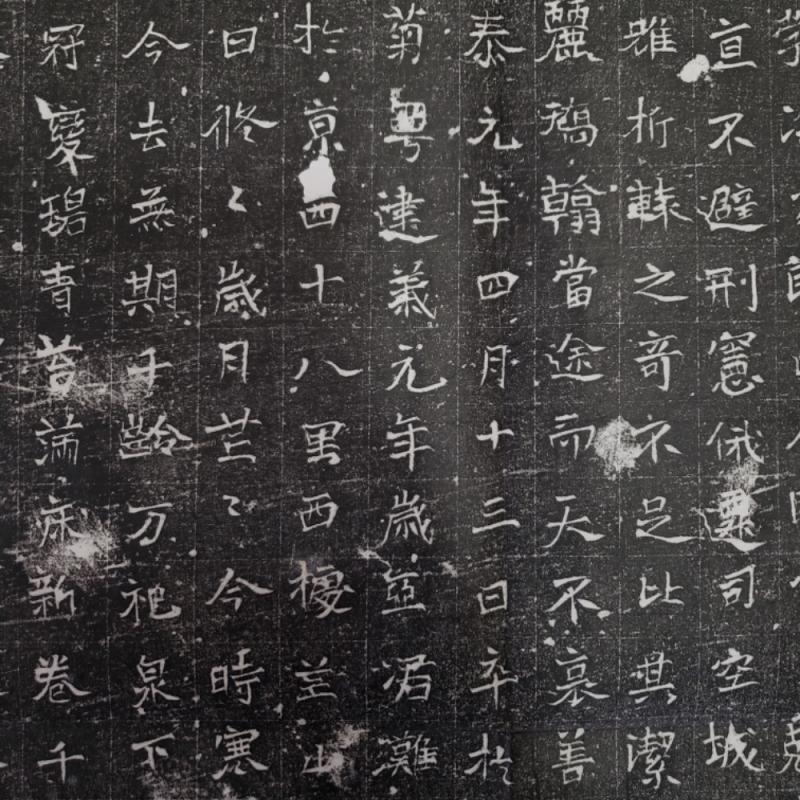 不避刑憲俄遷司空城
雖析轅之奇不足比其潔
麗鴻翰當途而天不哀善
泰元年四月十三日卒於
菊粤建義元年歲亞涒灘
於京西十八里西芒山
曰修〻歲月芒〻今時寒
今去無期千齡万祀泉下
青苔床新卷千